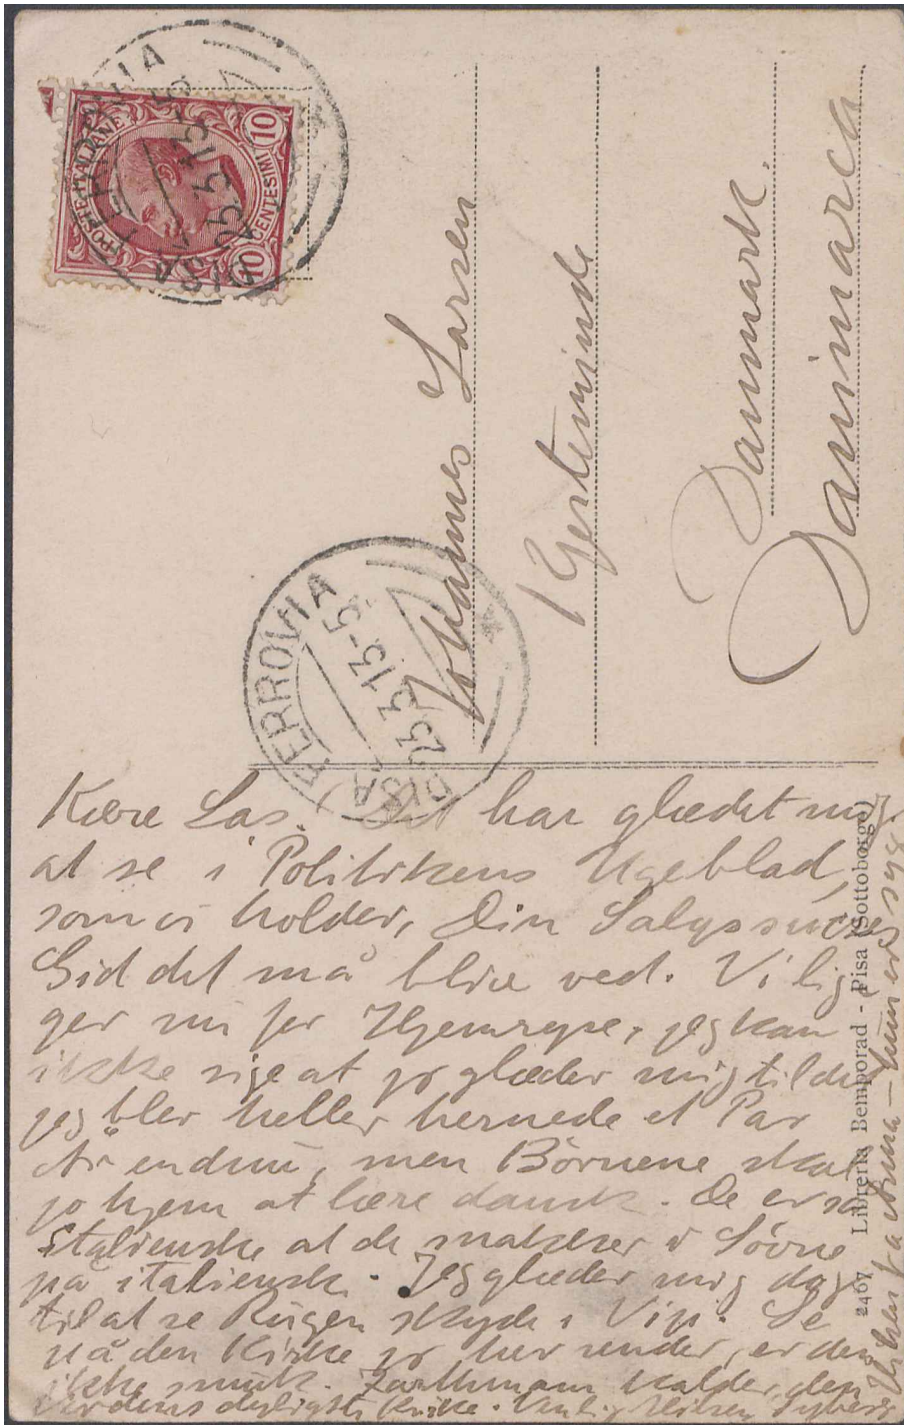 POSTE ITALIANE
CENTESIMI 10
10
PISA FERROVIA
23.3.13-5
Johannes Larsen
Kjerteminde
Danmark.
Danimarca
PISA FERROVIA
23.3.13-5
Kære Las. Det har glædet mig
at se i Politikens Ugeblad,
som vi holder, Din Salgssucces
Gid det må blive ved. Vi lig
ger nu for Hjemrejse, jeg kan
ikke sige at jeg glæder mig til det
jeg blev heller hernede et Par
År endnu, men Börnene skal
jo hjem at lære dansk. De er så
italienske at de snakker i Sövne
på italiensk. Jeg glæder mig dog
til at se Rugen skyde i Vip. Se
på den Kirke jeg her sender, er den
ikke smuk. Zarthmann kalder den
Verdens dejligste Kirke. Hilsen Syberg
fra Anna – hun er syg
2467 Libreria Bemporad - Pisa (Sottoborgo)